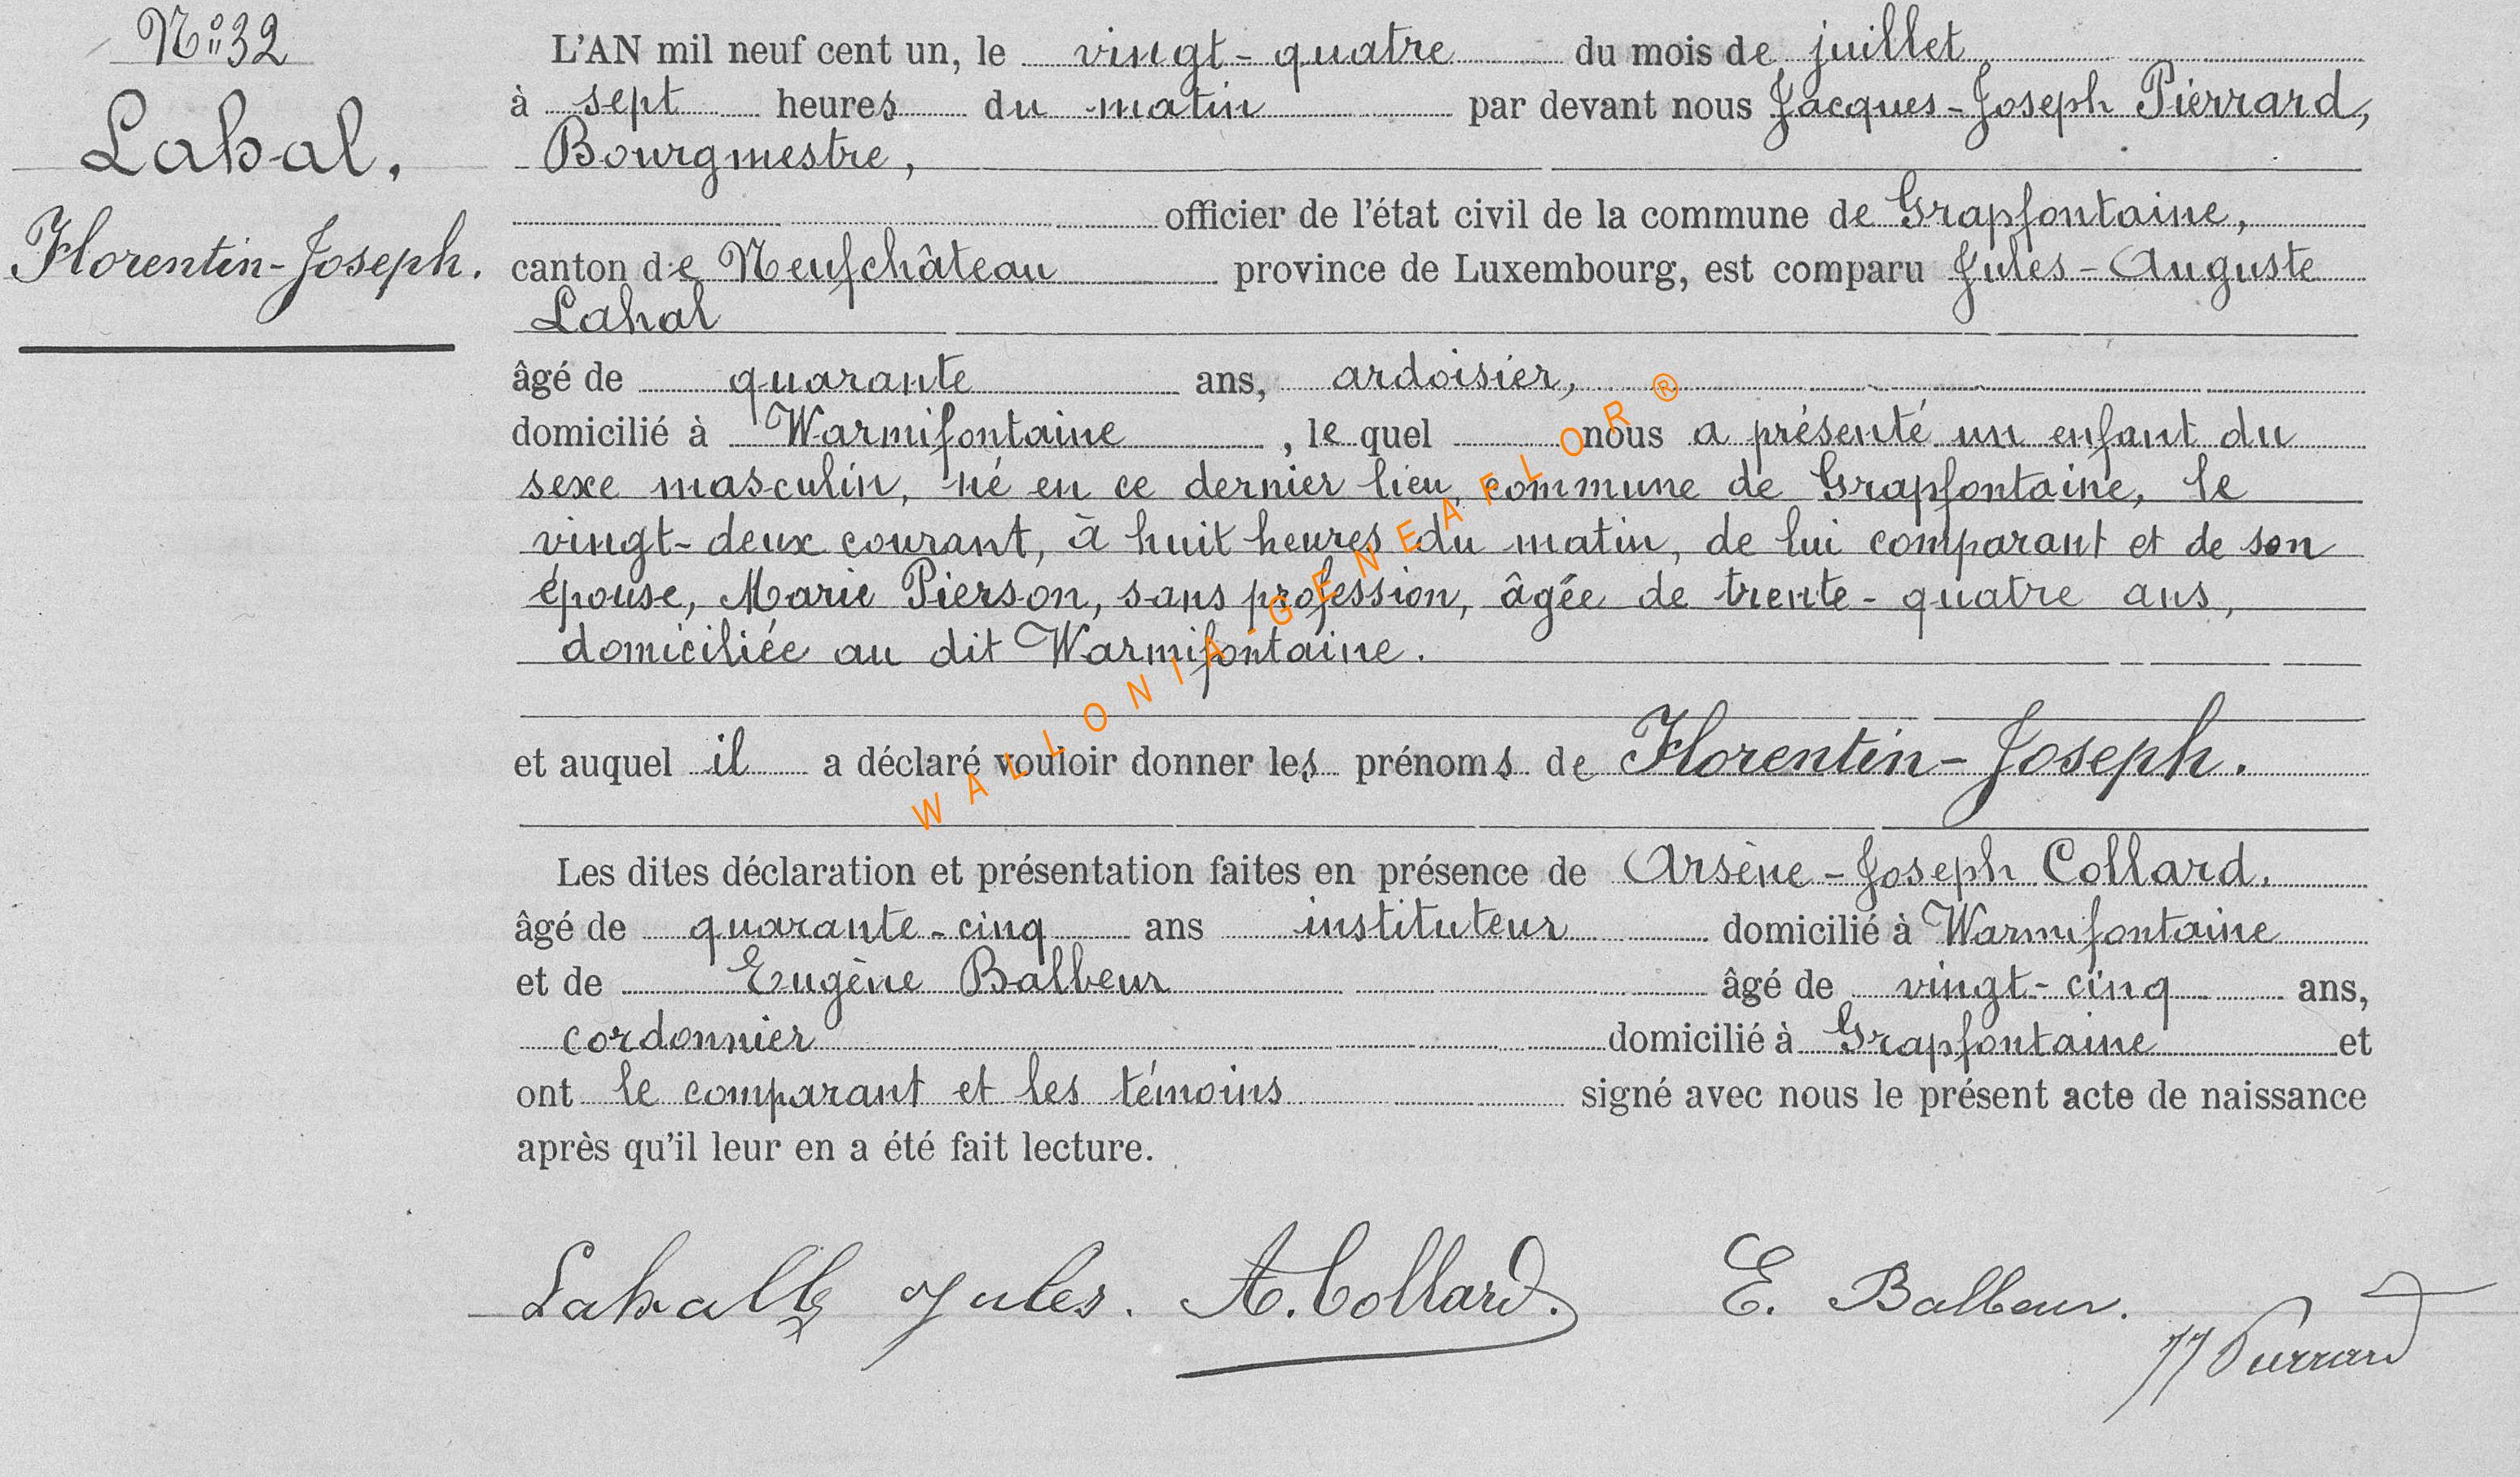 N° 32
Lahal,
Florentin-Joseph.
L'AN mil neuf cent un, le vingt-quatre du mois de juillet
à sept heures du matin par devant nous Jacques-Joseph Pierrard,
Bourgmestre,
officier de l'état civil de la commune de Grapfontaine,
canton de Neufchâteau province de Luxembourg, est comparu Jules-Auguste
Lahal
âgé de quarante ans, ardoisier,
domicilié à Warmifontaine, le quel nous a présenté un enfant du
sexe masculin, né en ce dernier lieu, commune de Grapfontaine, le
vingt-deux courant, à huit heures du matin, de lui comparant et de son
épouse, Marie Pierson, sans profession, âgée de trente-quatre ans,
domiciliée au dit Warmifontaine.
et auquel il a déclaré vouloir donner les prénoms de Florentin-Joseph.
Les dites déclaration et présentation faites en présence de Arsène-Joseph Collard.
âgé de quarante-cinq ans instituteur domicilié à Warmifontaine
et de Eugène Balbeur âgé de vingt-cinq ans,
cordonnier domicilié à Grapfontaine et
ont le comparant et les témoins signé avec nous le présent acte de naissance
après qu'il leur en a été fait lecture.
Lahalle Jules. A. Collard. E. Balbeur.
JJ Pierrard
WALLONIA-GENEAFLOR ®